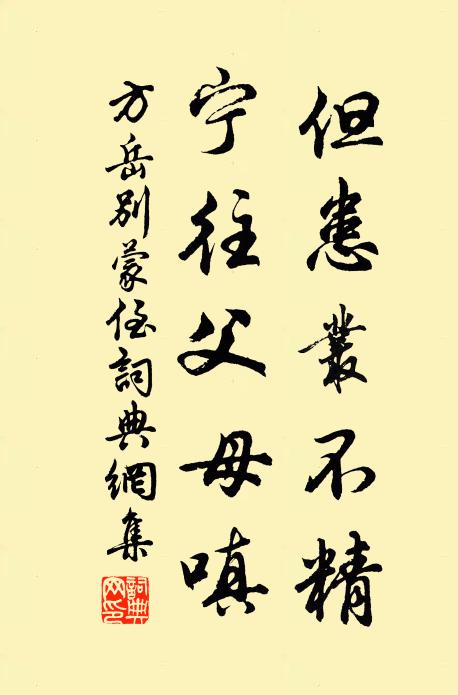 但患叢不精
宁往父母嗔
方岳別蒙侄詞典網集
詞典網印